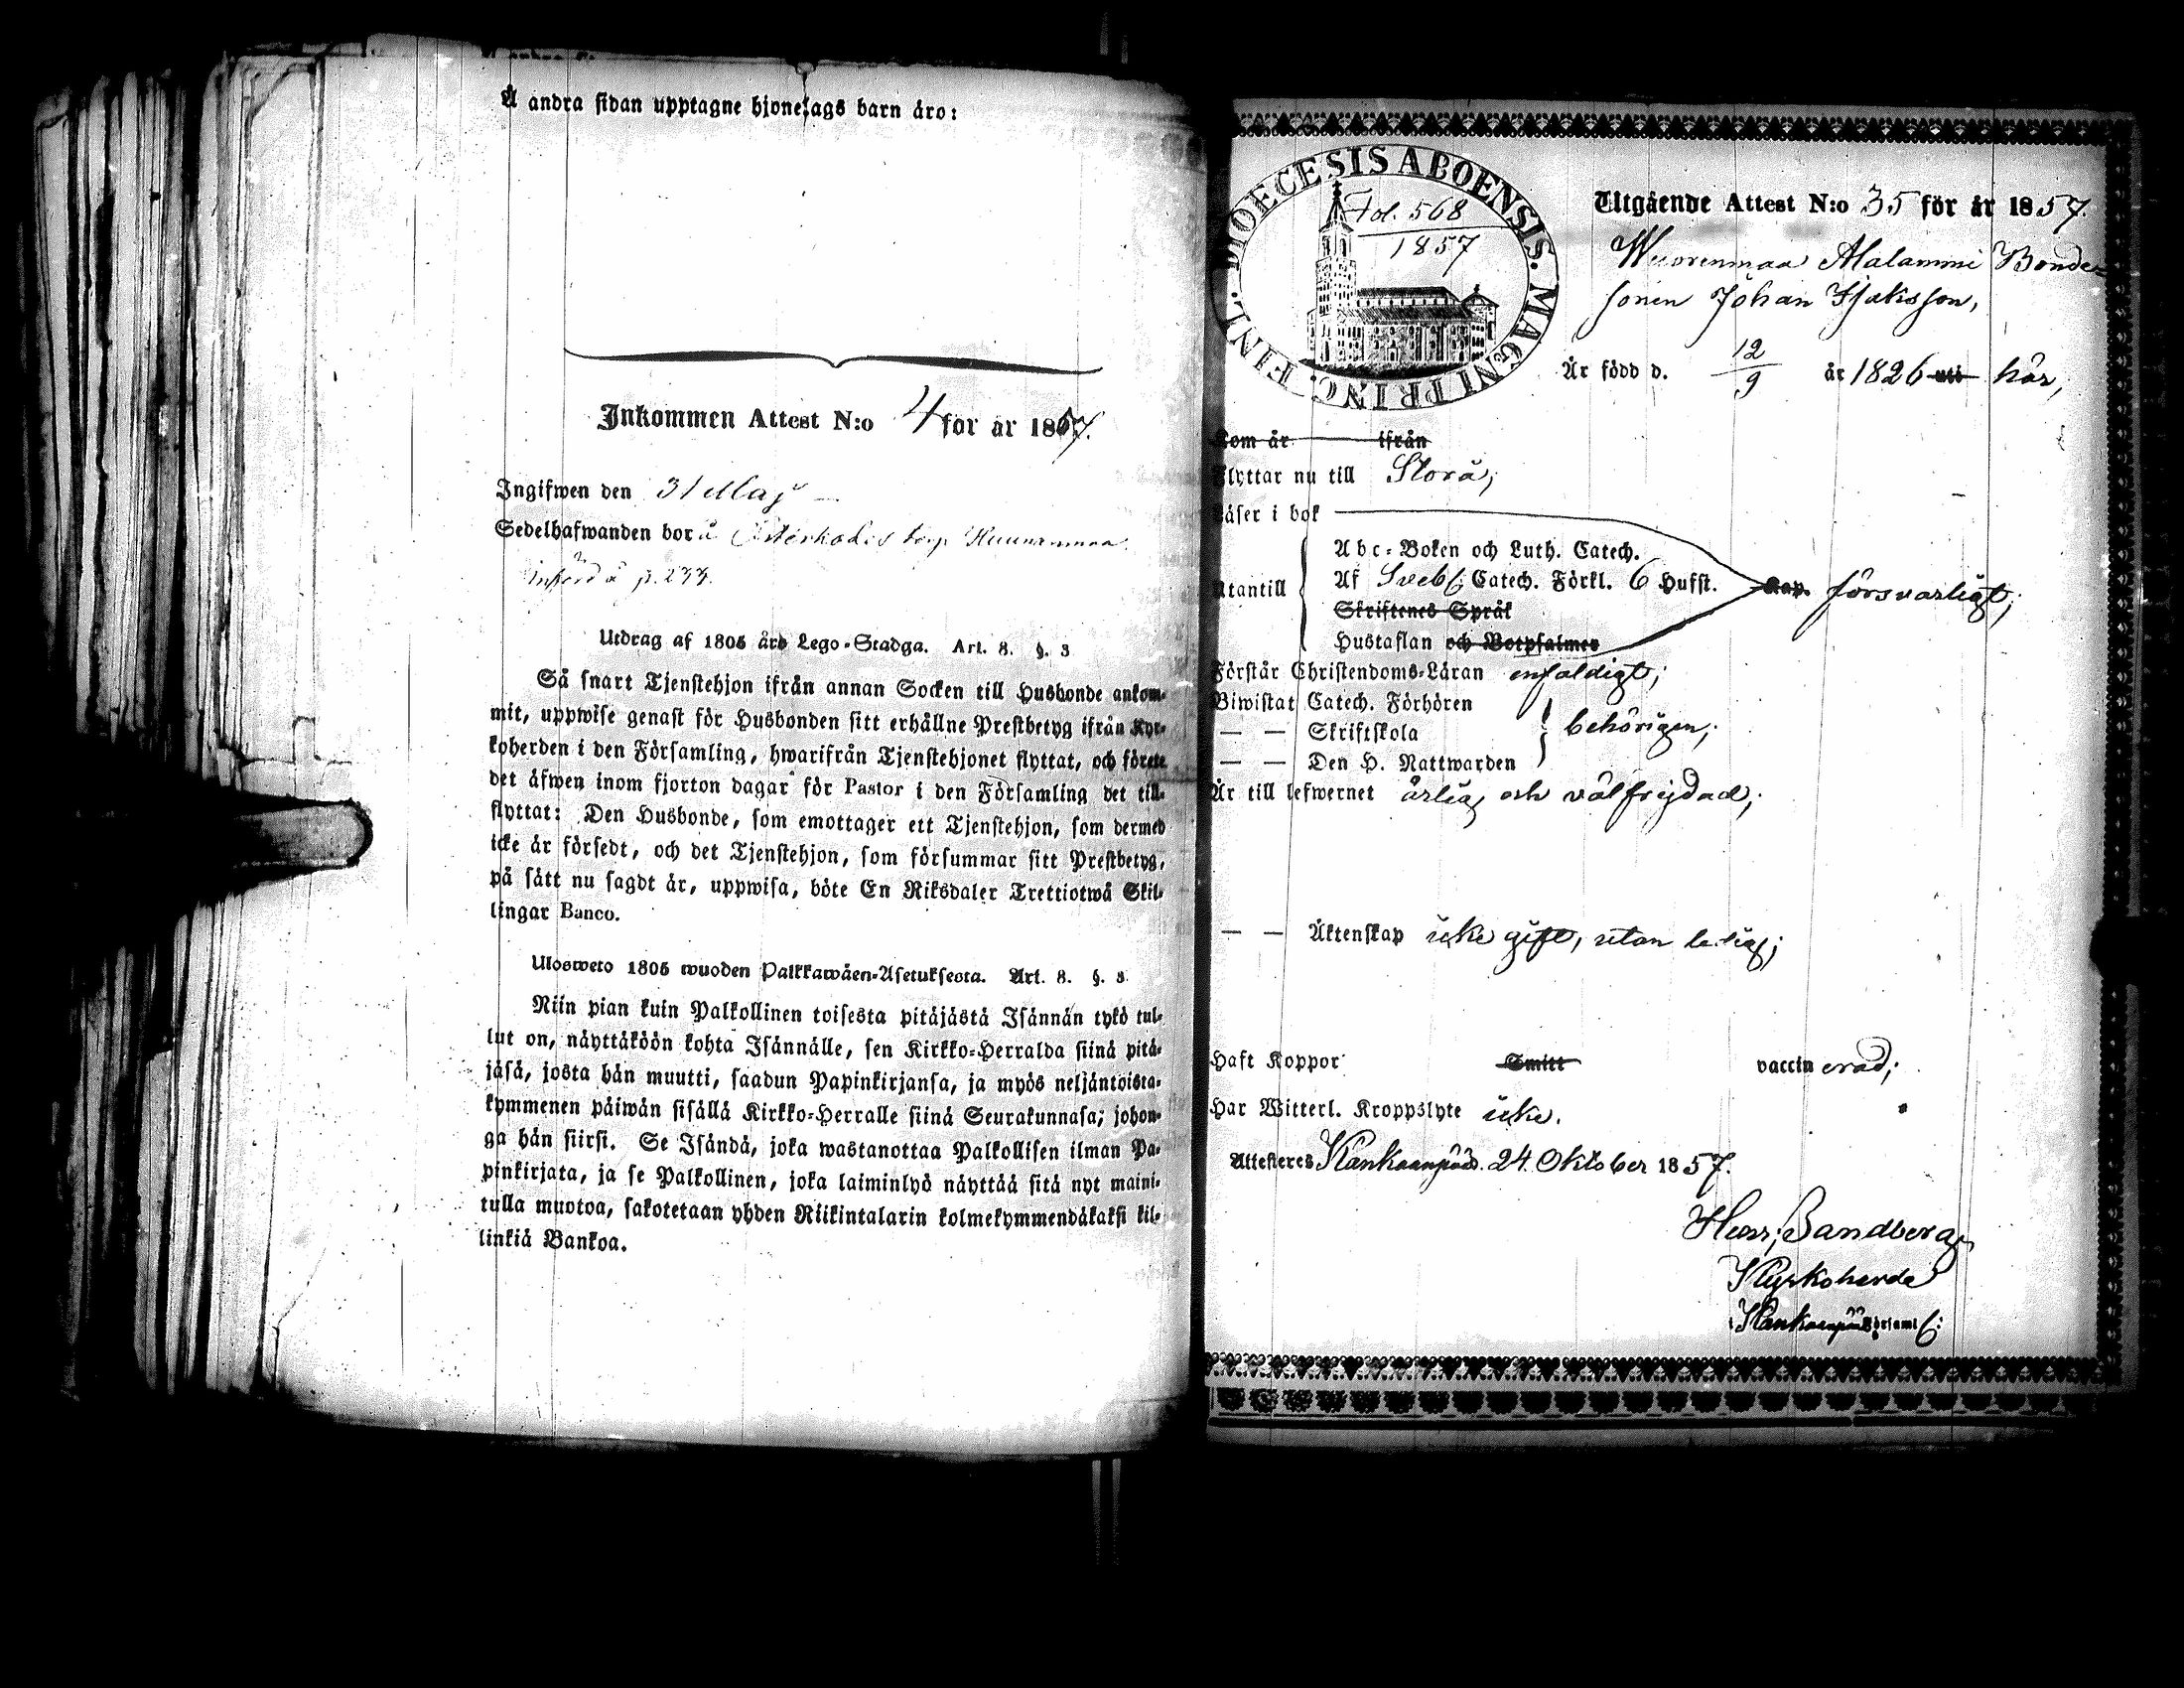 Å andra sidan upptagne hjonelags barn äro:
Inkommen Attest N:o 4 för år 1857.
Ingifwen den 31 Maj
Sedelhafwanden bor å torp
införd å p. 233.
Utdrag af 1805 års Lego-Stadga. Art. 8. §. 3
Så snart Tjenstehjon ifrån annan Socken till Husbonde ankom-
mit, uppwise genast för Husbonden sitt erhållne Prestbetyg ifrån Kyr-
koherden i den Församling, hwarifrån Tjenstehjonet flyttat, och förete
det äfwen inom fjorton dagar för Pastor i den Församling det till-
flyttat: Den Husbonde, som emottager ett Tjenstehjon, som dermed
icke är försedt, och det Tjenstehjon, som försummar sitt Prestbetyg,
på sätt nu sagdt är, uppwisa, böte En Riksdaler Trettiotwå Skil-
lingar Banco.
Ulosweto 1805 wuoden Palkkawäen-Asetuksesta. Art. 8. §. 3
Niin pian kuin Palkollinen toisesta pitäjästä Isännän tykö tul-
lut on, näyttäköön kohta Isännälle, sen Kirkko-Herralda siinä pitä-
jäsä, josta hän muutti, saadun Papinkirjansa, ja myös neljäntoista-
kymmenen päiwän sisällä Kirkko-Herralle siinä Seurakunnasa, johon-
ga hän siirsi. Se Isändä, joka wastanottaa Palkollisen ilman Pa-
pinkirjata, ja se Palkollinen, joka laiminlyö näyttää sitä nyt maini-
tulla muotoa, sakotetaan yhden Riikintalarin kolmekymmendäkaksi kil-
linkiä Bankoa.
DIOECESIS ABOENSIS. MAGNI PRINC. FINL.
Fol. 568
1857
Utgående Attest N:o 35 för år 1857.
Wuorenmaa Alalammi Bonde-
sonen Johan Isaksson,
Är född d. 12/9 år 1826 uti här,
Kom år ifrån
Flyttar nu till Storå;
Läser i bok
Utantill
Abc-Boken och Luth. Catech.
Af Sveb: Catech. Förkl. 6 Hufst. Kap. försvarligt;
Skriftenes Språk
Hustaflan och Botpsalmer
Förstår Christendoms-Läran enfaldigt;
Biwistat Catech. Förhören
— — Skriftskola behörigen;
— — Den H. Nattwarden
Är till lefwernet ärlig och välfrejdad;
— — Äktenskap icke gift, utan ledig;
Haft Koppor Smitt vaccinerad;
Har Witterl. Kroppslyte icke.
Attesteres Kankaanpää d. 24 Oktober 1857.
Henr; Sandberg
Kyrkoherde
i Kankaanpää Församl: